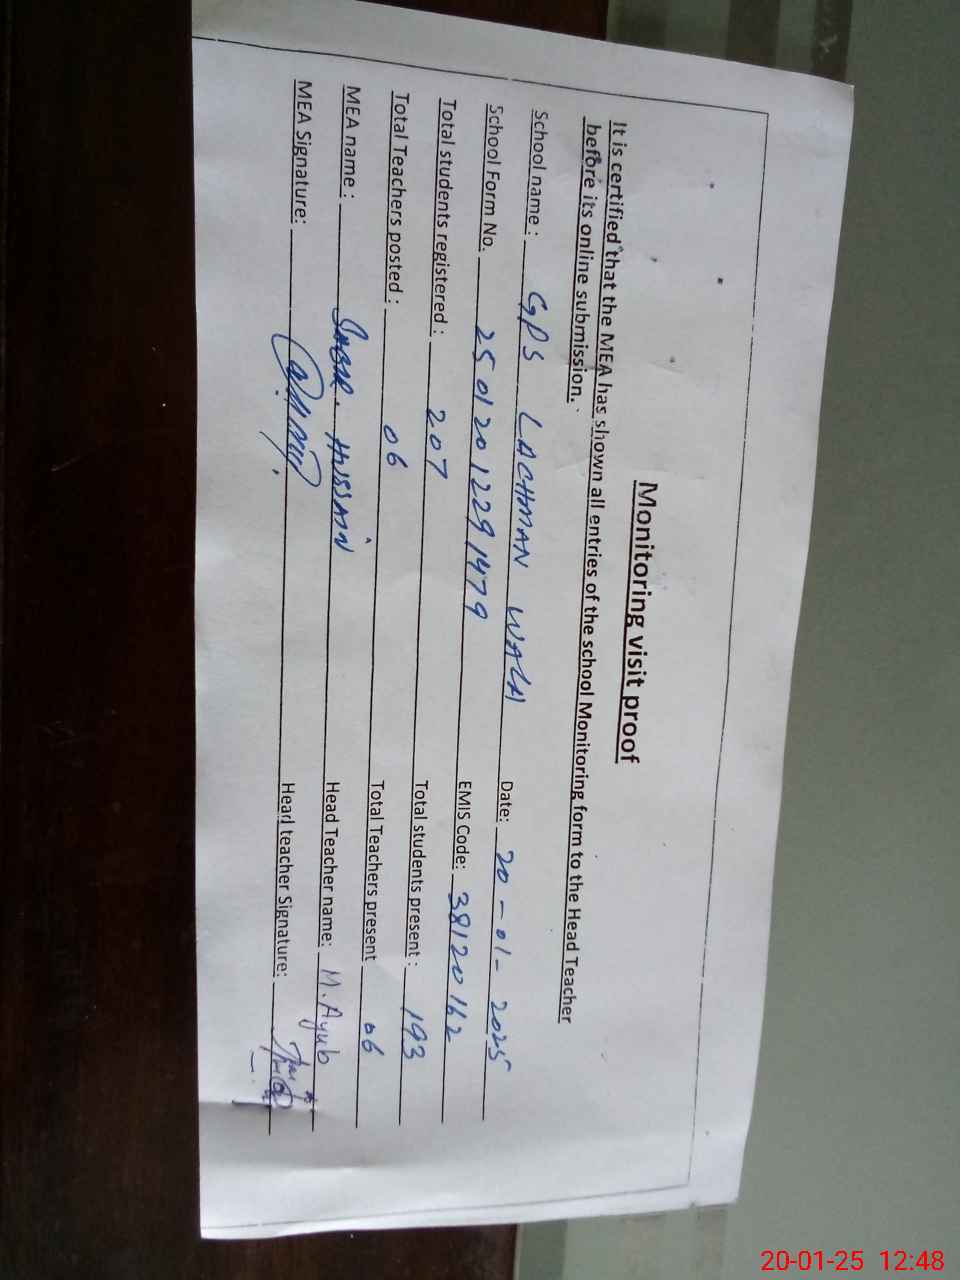 Monitoring visit proof
It is certified that the MEA has shown all entries of the school Monitoring form to the Head Teacher
before its online submission.
School name : GPS LACHMAN WALA Date: 20-01-2025
School Form No. 25012012291479 EMIS Code: 38120162
Total students registered : 207 Total students present : 193
Total Teachers posted : 06 Total Teachers present 06
MEA name : HUSSAIN Head Teacher name: M. Ayub
MEA Signature: Head teacher Signature:
20-01-25 12:48